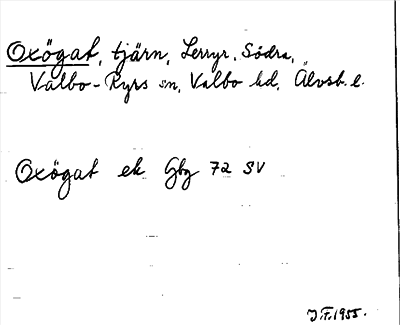 Oxögat, tjärn, Lerryr, Södra,
Valbo-Ryrs sn, Valbo hd, Älvsb. l.
Oxögat ek Gbg 72 SV
J.F. 1955.